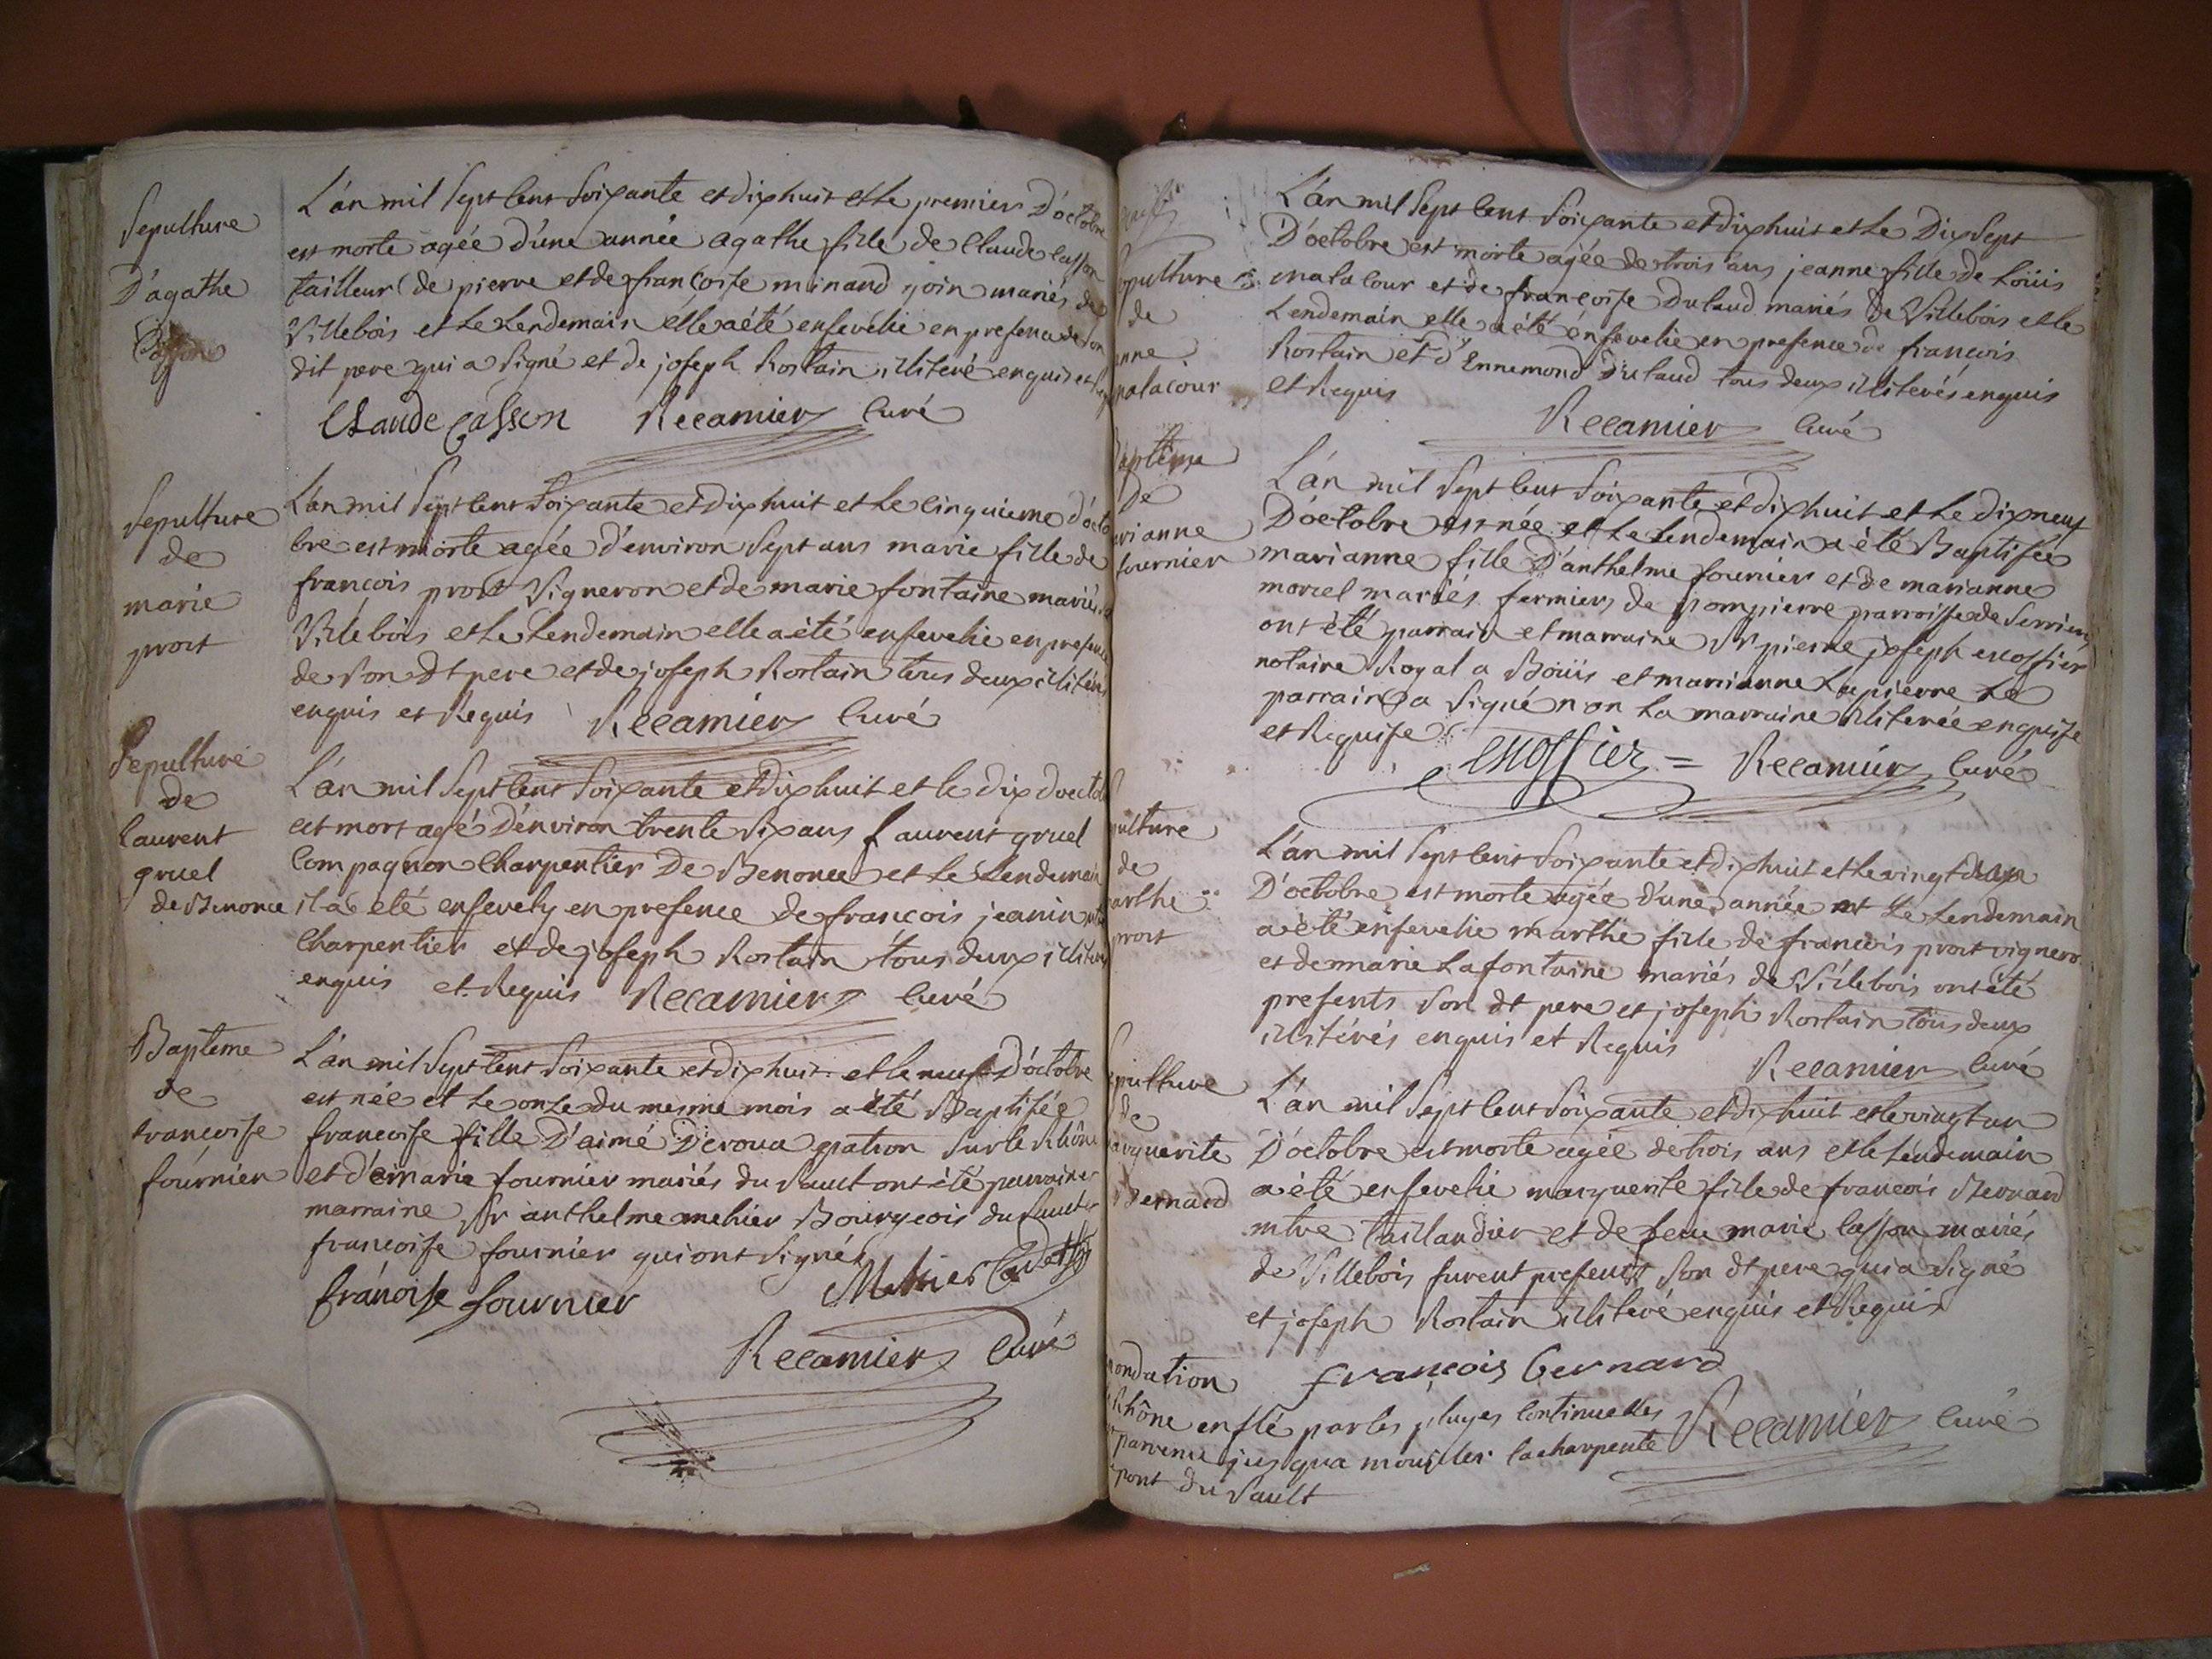 Sepulture
D'agathe
Casson
L'án mil sept cens soixante et dix huit et le premier D'octobre
est morte agée d'une année agathe fille de Claude Casson
tailleur de pierre et de françoise minand mariés de
Villebois et le lendemain elle a été ensevélie en presence de son
dit pere qui a signé et de joseph Rostain illiteré enquis et
Claude Casson Recamier Curé
Sepulture
de
marie
prost
L'án mil sept cens soixante et dix huit et le cinquieme d'octo
bre est morte agée d'environ sept ans marie fille de
françois prost Vigneron et de marie fontaine mariés
Villebois et le lendemain elle a été ensevelie en presence
de son dt pere et de joseph Rostain tous deux illiterés
enquis et Requis Recamier Curé
Sepulture
de
Laurent
gruel
de Benonce
L'án mil sept cens soixante et dix huit et le dix doctobre
est mort agé d'environ trente six ans Laurent gruel
Compagnon Charpentier De Benonce et le Lendemain
il a été ensevely en presence de françois jeanin
Charpentier et de joseph Rostain tous deux illiteres
enquis et Requis Recamier Curé
Bapteme
de
francoise
fournier
L'án mil sept cens soixante et dix huit et le neuf D'óctobre
est née et le onze du mesme mois a été Baptisée
francoise fille D'aimé Deroua patron sur le Rhône
et de marie fournier mariés du Sault ont été parrain et
marraine Sr anthelme mehier Bourgeois du Sault et
françoise fournier qui ont signés
françoise fournier Mehier Cadet
Recamier Curé
pulture
de
anne
malacour
L'án mil sept cens soixante et dix huit et le Dix sept
D'octobre est morte agée de trois ans jeanne fille de Loüis
malacour et de françoise Dulaud mariés de Villebois et le
Lendemain elle a été ensevelie en presence de françois
Rostain et d'Ennemond Dulaud tous deux illiterés enquis
et Requis
Recamier Curé
aptême
De
arianne
fournier
L'án mil sept cens soixante et dix huit et le dix neuf
D'octobre est née et le Lendemain a été Baptisée
marianne fille D'anthelme fournier et de marianne
morcel mariés fermiers de pompierre parroisse de Serrieres
ont été parrain et marraine Sr pierre joseph escoffier
notaire Royal a Boüis et marianne Lapierre Le
parrain a signé non La marraine illiterée enquise
et Requise
escoffier = Recamier Curé
pulture
de
arthe
prost
L'án mil sept cens soixante et dix huit et le vingt
D'octobre est morte agée d'une année et Le Lendemain
a été ensevelie marthe fille de francois prost vigneron
et de marie Lafontaine mariés de Villebois ont été
presents son dt pere et joseph Rostain tous deux
illitérés enquis et Requis
Recamier Curé
pulture
de
arguerite
Bernard
L'án mil sept cens soixante et dix huit et le vingt un
D'octobre est morte agée de trois ans et le lendemain
a été ensevelie marguerite fille de francois Bernard
mtre taillandier et de feue marie Casson mariés
de Villebois furent presents son dt pere qui a signé
et joseph Rostain illiteré enquis et Requis
françois bernard
Recamier Curé
nondation
Rhône enflé par les pluyes continuelles
parvenu jusqua mouiller la charpente
pont du Sault